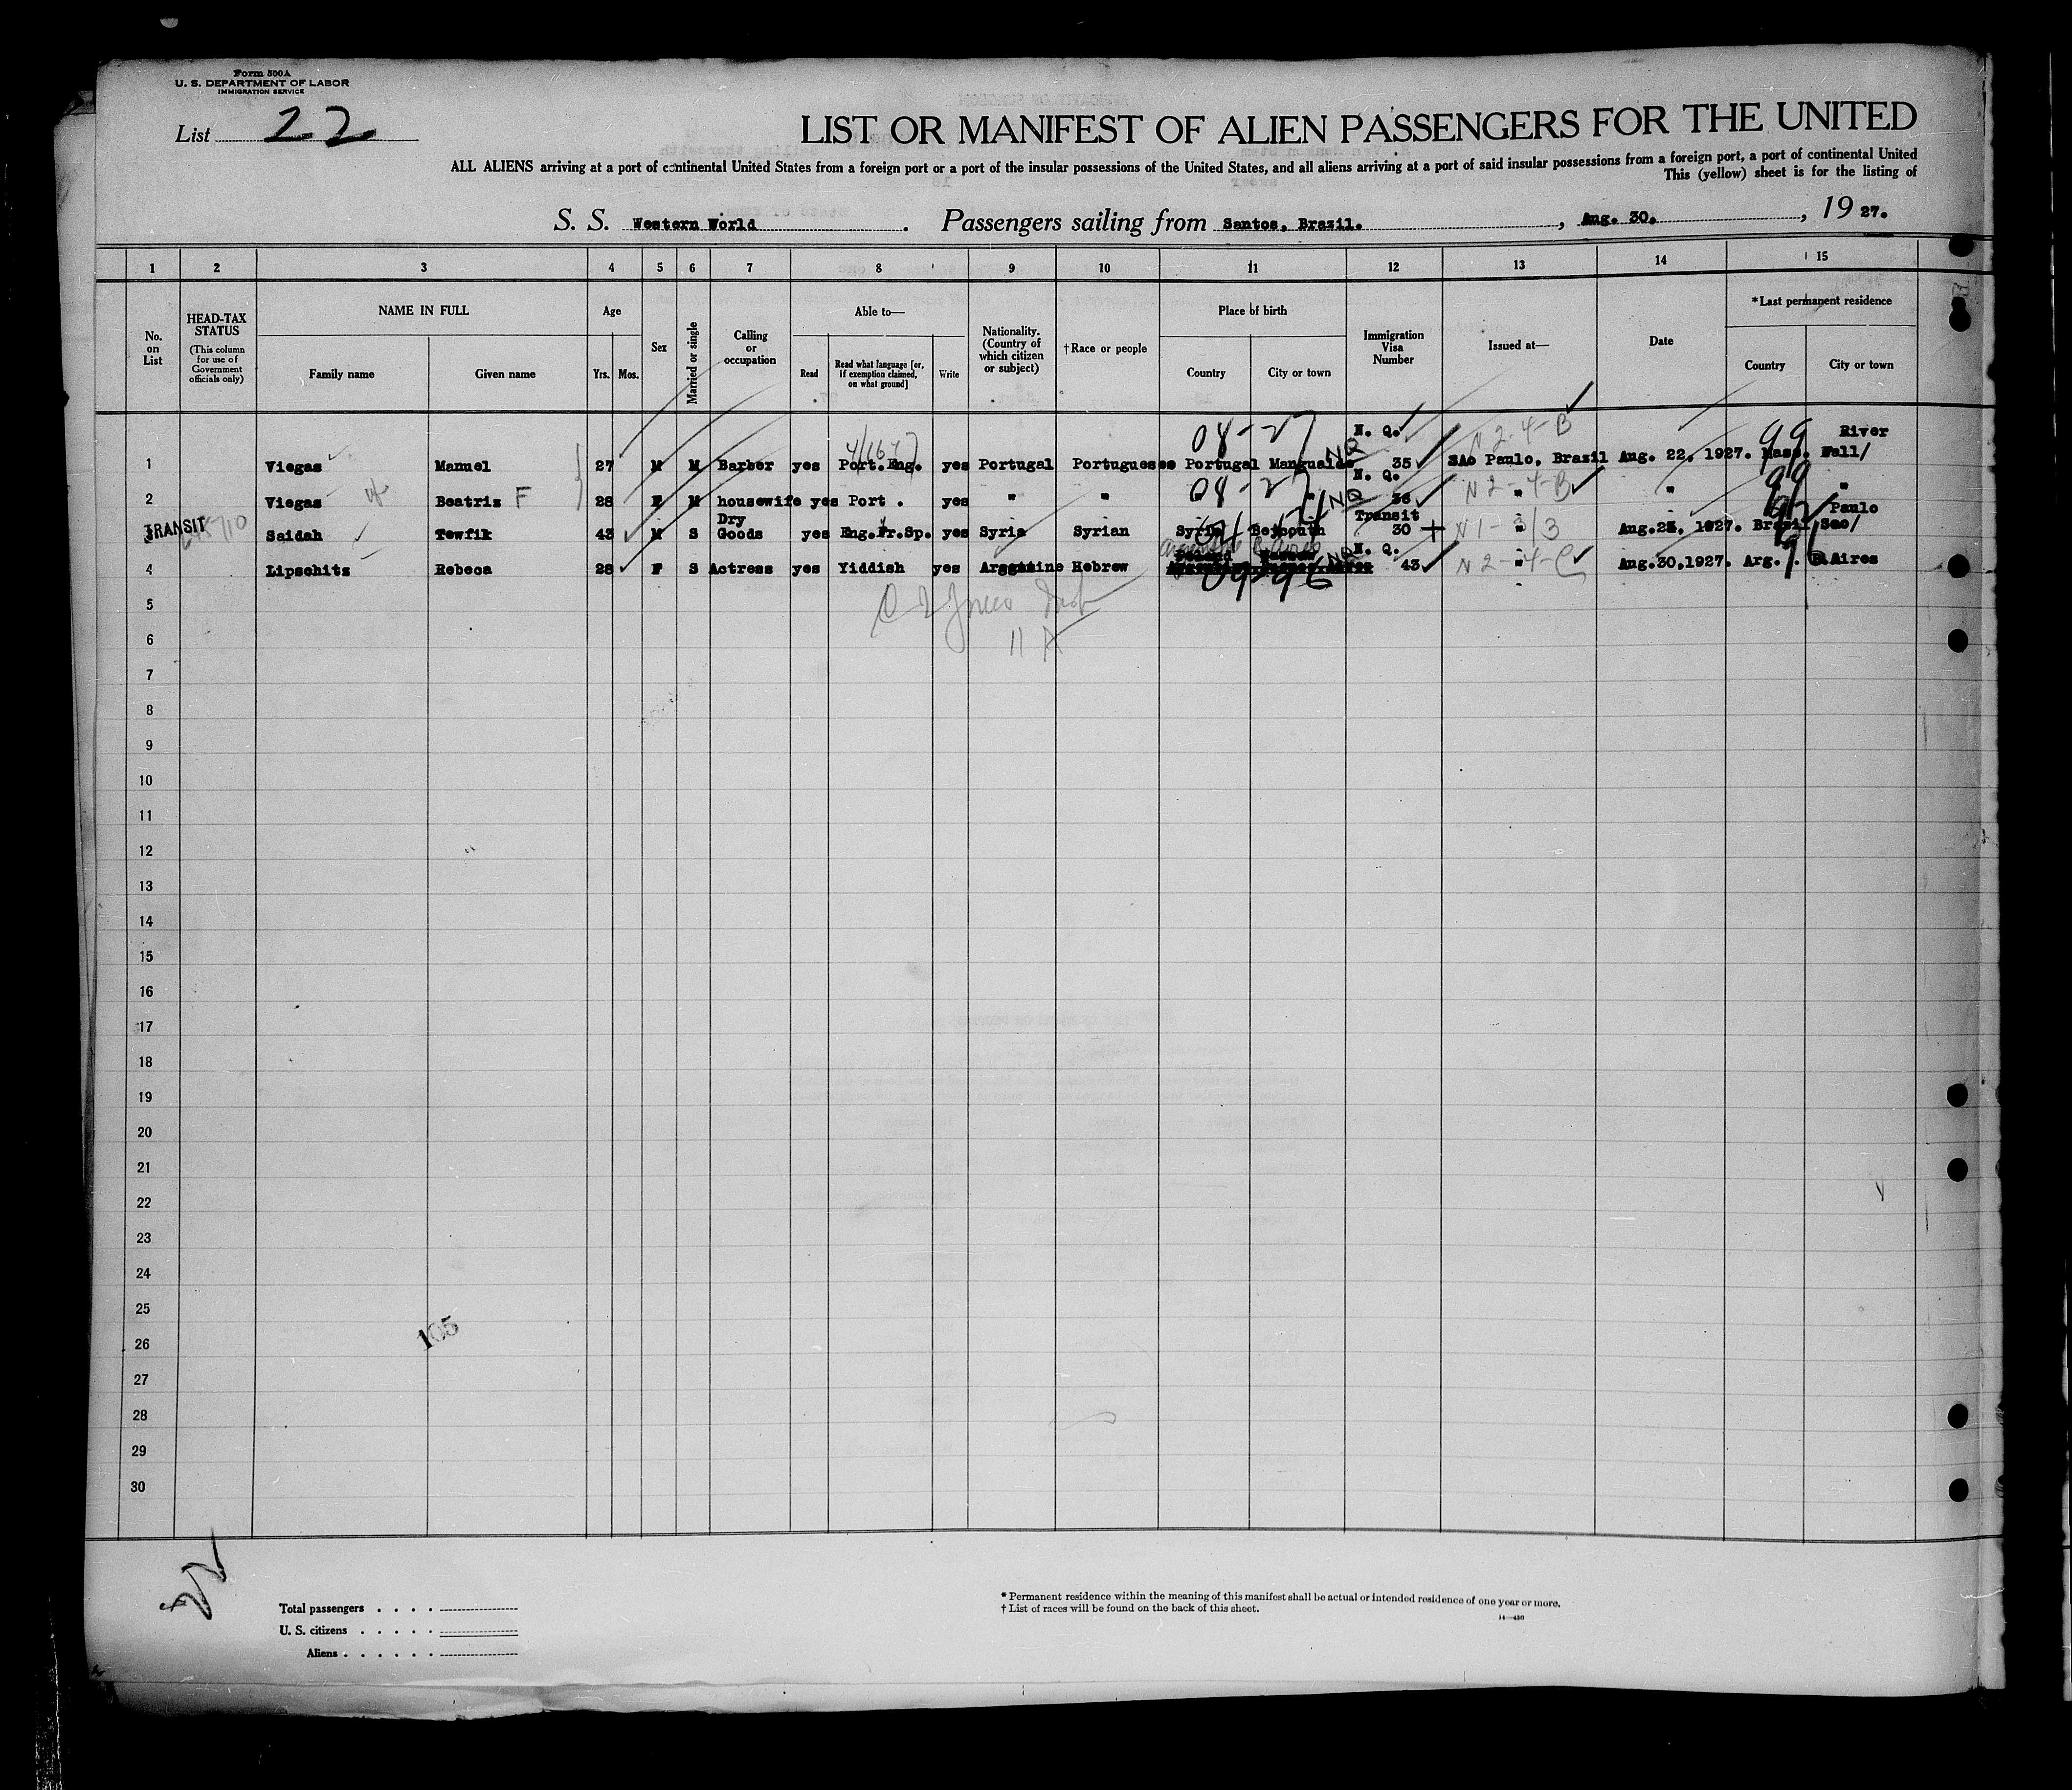 Form 500A
U. S. DEPARTMENT OF LABOR
IMMIGRATION SERVICE
List 22
LIST OR MANIFEST OF ALIEN PASSENGERS FOR THE UNITED
ALL ALIENS arriving at a port of continental United States from a foreign port or a port of the insular possessions of the United States, and all aliens arriving at a port of said insular possessions from a foreign port, a port of continental United
This (yellow) sheet is for the listing of
S. S. Western World. Passengers sailing from Santos, Brazil., Aug. 30., 1927.
1 2 3 4 5 6 7 8 9 10 11 12 13 14 15
No. on List
HEAD-TAX STATUS (This column for use of Government officials only)
NAME IN FULL
Family name
Given name
Age
Yrs. Mos.
Sex
Married or single
Calling or occupation
Able to—
Read
Read what language [or, if exemption claimed, on what ground]
Write
Nationality. (Country of which citizen or subject)
†Race or people
Place of birth
Country
City or town
Immigration Visa Number
Issued at—
Date
*Last permanent residence
Country
City or town
08-27 N. Q. N 2-4-B 99 River
1 Viegas Manuel 27 M M Barber yes Port.Eng. yes Portugal Portuguese Portugal Mangualde NQ 35 SAo Paulo, Brazil Aug. 22, 1927. Mass. Fall/
08-27 N. Q. 99
2 Viegas Beatriz F 28 F M housewife yes Port . yes " " " NQ 36 " N 2-4-B " "
TRANSIT Dry Transit Paulo
3 Saidah Tewfik 43 M S Goods yes Eng.Fr.Sp. yes Syria Syrian Syria Beyrouth 30 N1-3/3 " Aug.25, 1927. Brazil Sao/
Poland Warsaw N. Q.
4 Lipschitz Rebeca 28 F S Actress yes Yiddish yes Argentine Hebrew NQ 43 N 2-4-C " Aug.30,1927. Arg. B.Aires
5
6
11 A
7
8
9
10
11
12
13
14
15
16
17
18
19
20
21
22
23
24
25
26
105
27
28
29
30
22
Total passengers . . . .
U. S. citizens . . . . .
Aliens . . . . . .
* Permanent residence within the meaning of this manifest shall be actual or intended residence of one year or more.
† List of races will be found on the back of this sheet.
14—430